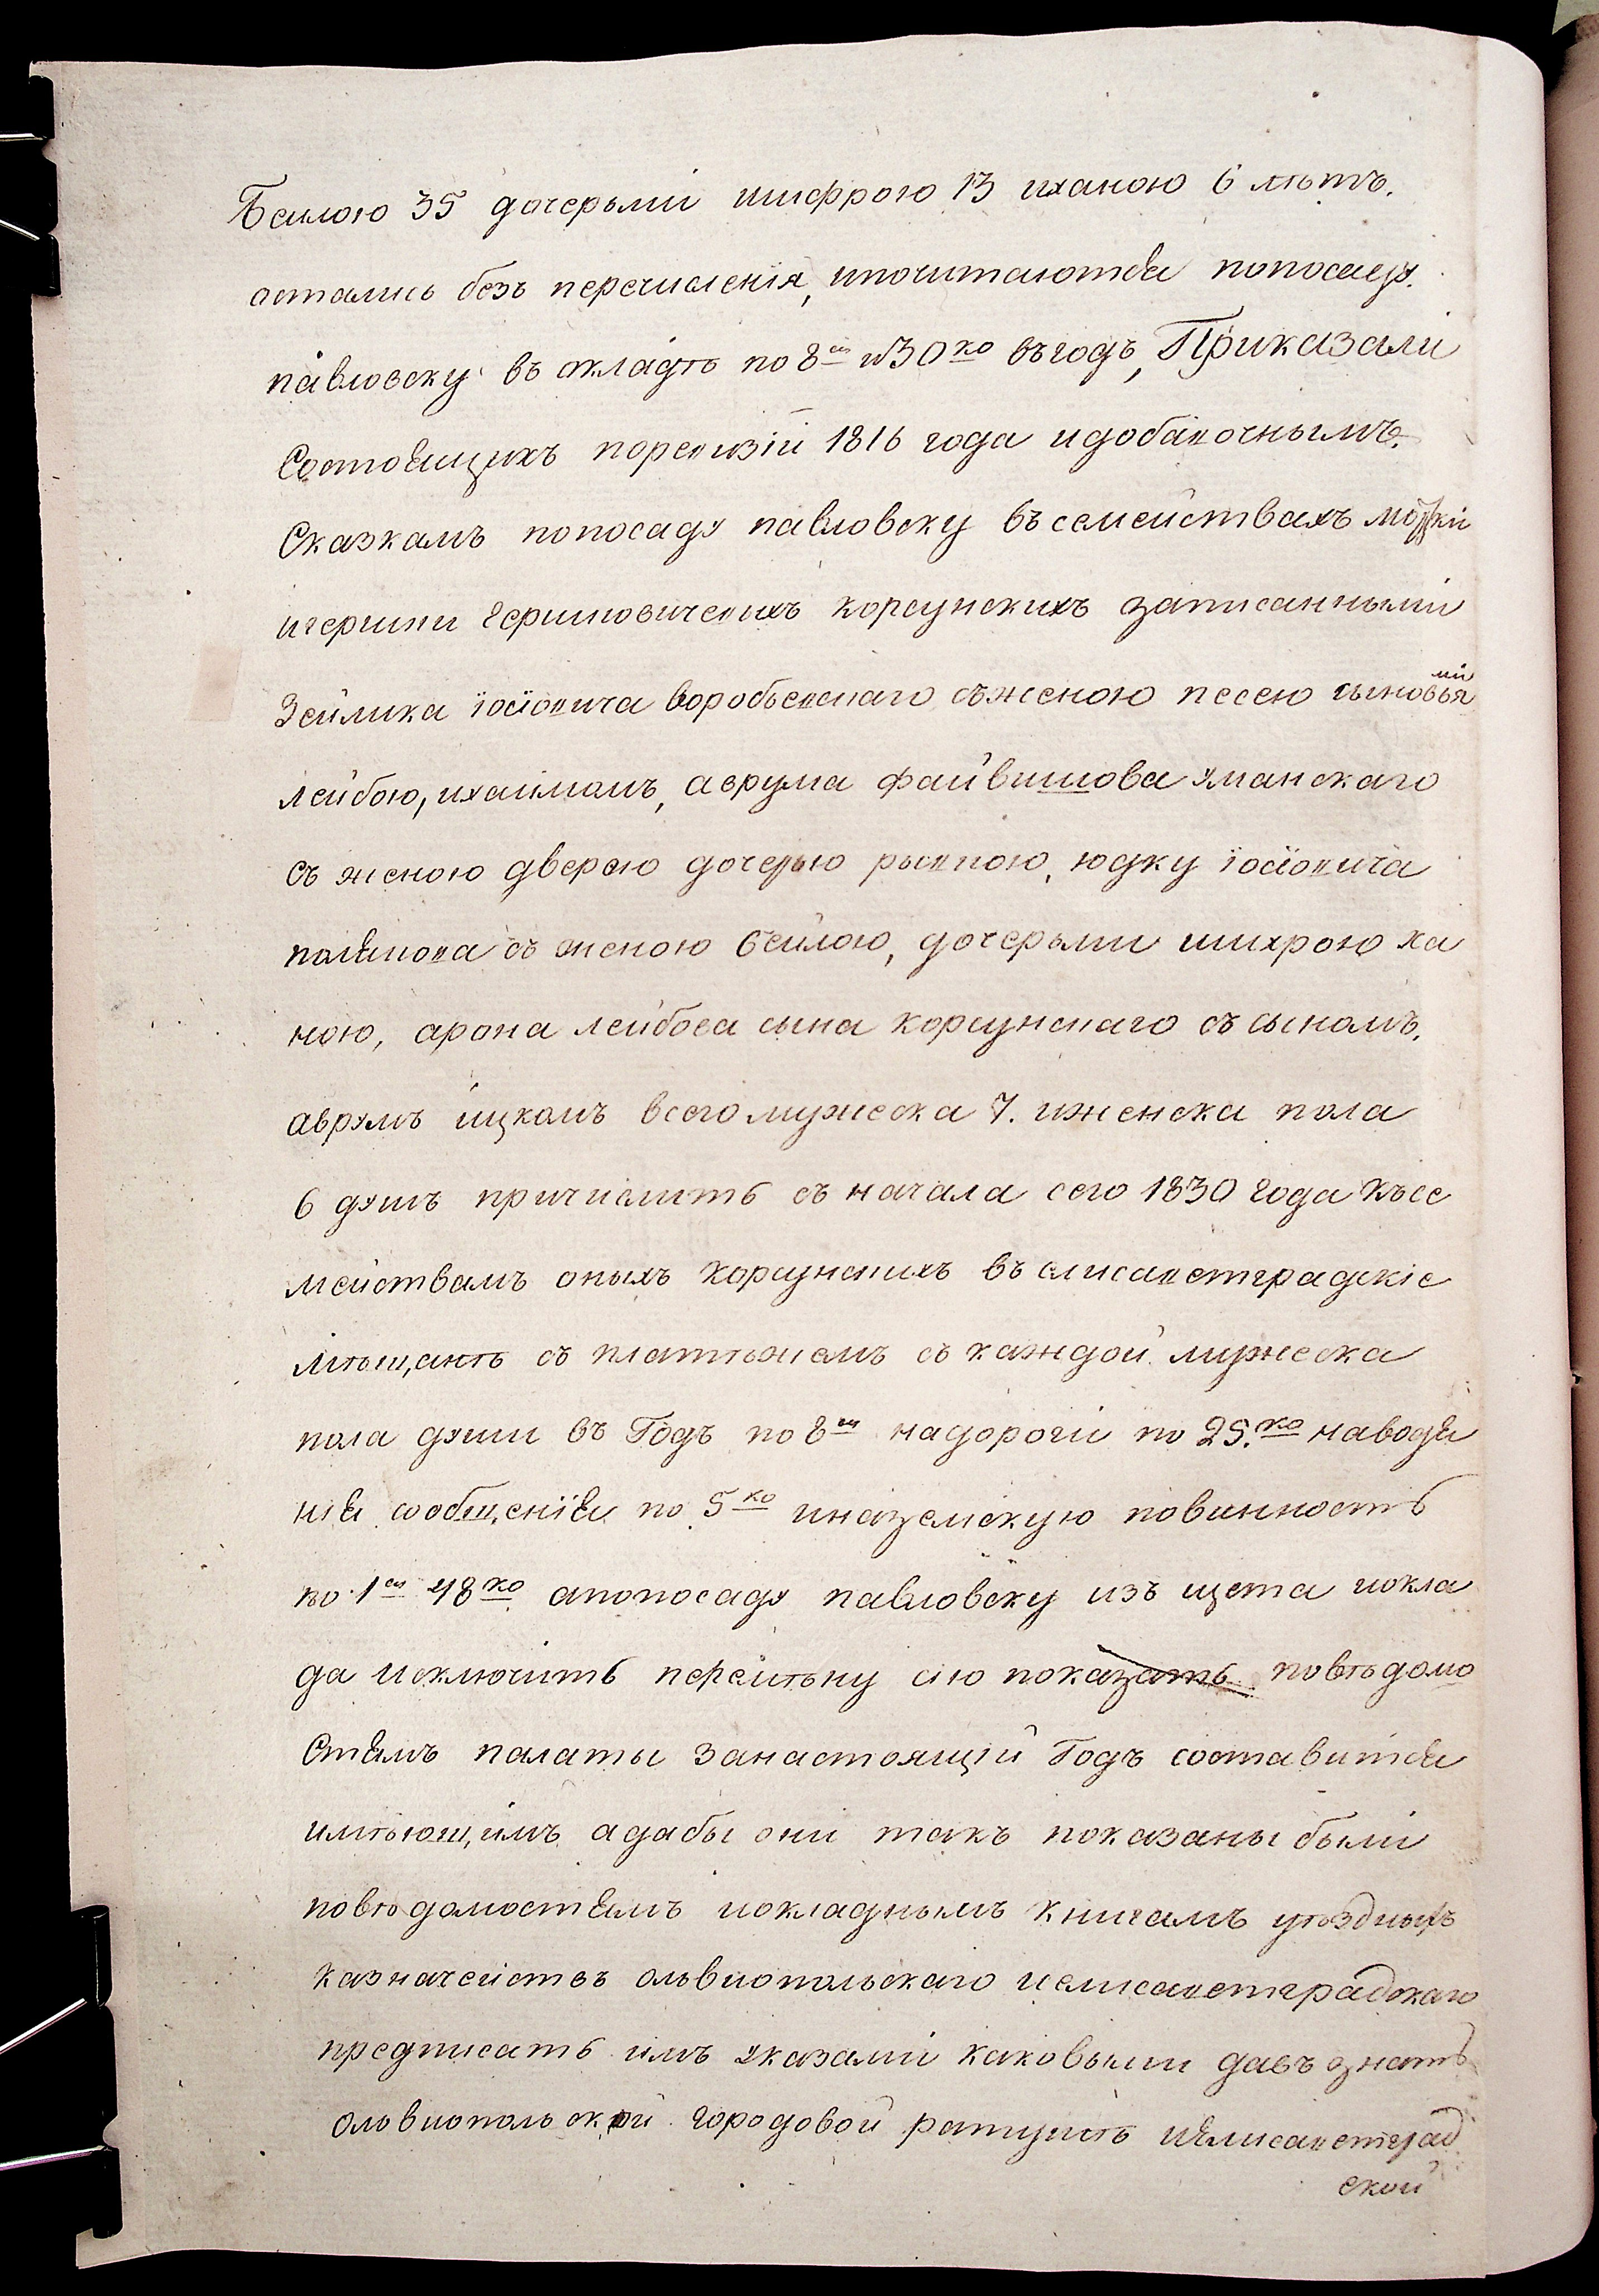 Беилою 35 дочерьми шифрою 13 иханою 6 лѣтъ.
остались безъ перечисленія, ипочитаются попосаду
павловску въ окладѣ по 8 и 30 ко въгодъ, Приказали
Состоящихъ поревизіи 1816 года идобавочнымъ.
Сказкамъ попосаду павловску въсемействахъ мошки
игершки Гершковичевихъ корсунскихъ записанныхъ
Зейлика іосіовича воробьевскаго съженою песею сыновья
ми
лейбою, ихаимомъ, аврума файвишова уманскаго
съ женою дверсою дочерью рывкою, юдку іосіовича
полякова съ женою бейлою, дочерьми шихрою ха
ною, арона лейбова сына корсунскаго съ сыномъ,
аврумъ ицкомъ всегомужеска 7. иженска пола
6 душъ причислить съ начала сего 1830 года Къ се
мействамъ оныхъ корсунскихъ въ елисаветградскіе
мѣщанѣ съ платежемъ съ каждой мужеска
пола души въ Годъ по 8 надороги по 25. ко наводя
нія сообщенія по 5 ко иназемскую повинность
по 1 48 ко апопосаду павловску изъ щета иокла
да Исключить перемѣну сію показать повѣдомо
Стямъ палаты занастоящій Годъ составится
имѣющимъ, адабы они такъ показаны были
повѣдомостямъ иокладнымъ книгамъ уѣздныхъ
казначействъ ольвиопольскаго иелисаветградскаго
предписать имъ указами каковыми давъ знать
ольвиопольской городовой ратушѣ иелисаветград
ской